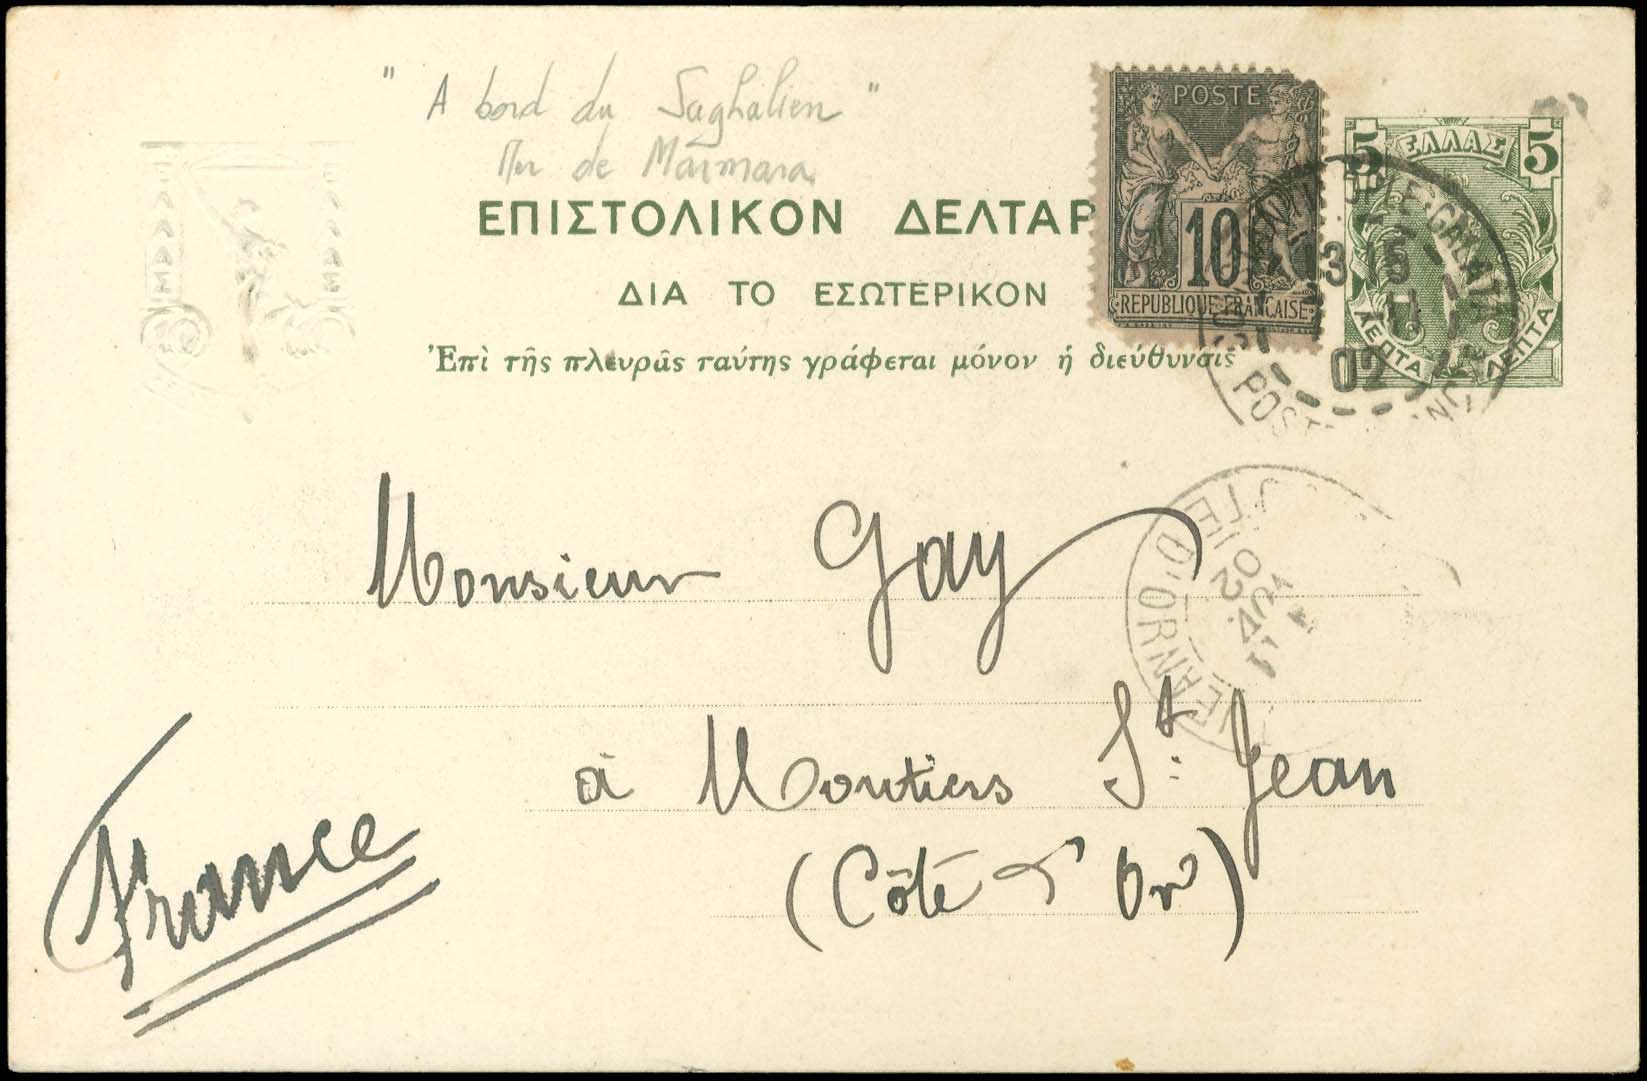 " A bord du Saghalien "
Mer de Marmara
ΕΠΙΣΤΟΛΙΚΟΝ ΔΕΛΤΑΡ
ΔΙΑ ΤΟ ΕΣΩΤΕΡΙΚΟΝ
Ἐπὶ τῆς πλευρᾶς ταύτης γράφεται μόνον ἡ διεύθυνσις
POSTE
10
REPUBLIQUE FRANCAISE
5 ΕΛΛΑΣ 5
ΛΕΠΤΑ ΛΕΠΤΑ
PLE-GALATA
3
02
POST
TE D'OR
02
JEAN
Monsieur Gay
à Moutiers St. Jean
(Côte d'Or)
France